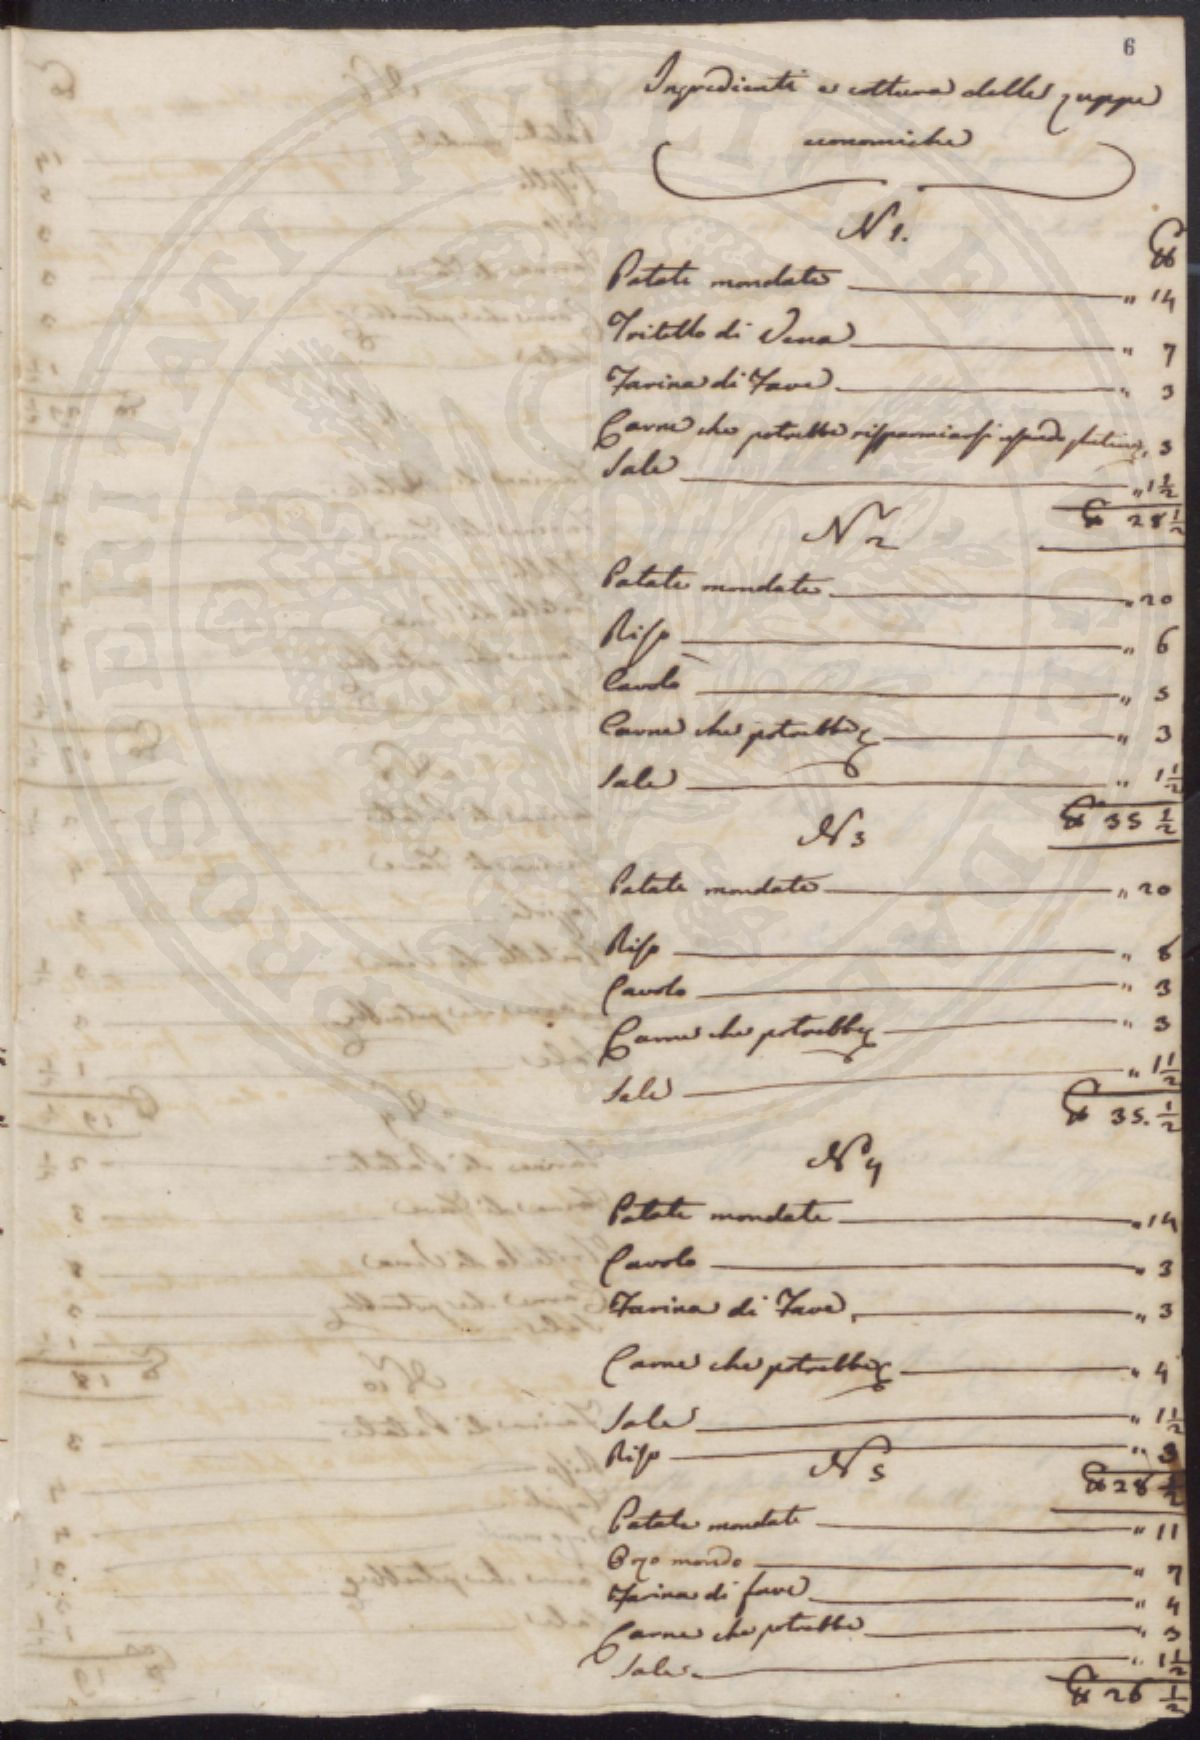 6
Ingredienti e cottura delle zuppe
economiche
N 1.
℔
Patate mondate " 14
Tritello di Vena " 7
Farina di Fave " 3
Carne che potrebbe risparmiarsi usando " 3
Sale " 1 1/2
℔ 28 1/2
N 2
Patate mondate " 20
Riso " 6
Cavolo " 5
Carne che potrebbe " 3
Sale " 1 1/2
℔ 35 1/2
N 3
Patate mondate " 20
Riso " 8
Cavolo " 3
Carne che potrebbe " 3
Sale " 1 1/2
℔ 35. 1/2
N 4
Patate mondate " 14
Cavolo " 3
Farina di Fave " 3
Carne che potrebbe " 4
Sale " 1 1/2
Riso " 3
℔ 28 1/2
N 5
Patate mondate " 11
Orzo mondo " 7
Farina di fave " 4
Carne che potrebbe " 3
Sale " 1 1/2
℔ 26 1/2
PROSPERITATI PUBLICAE